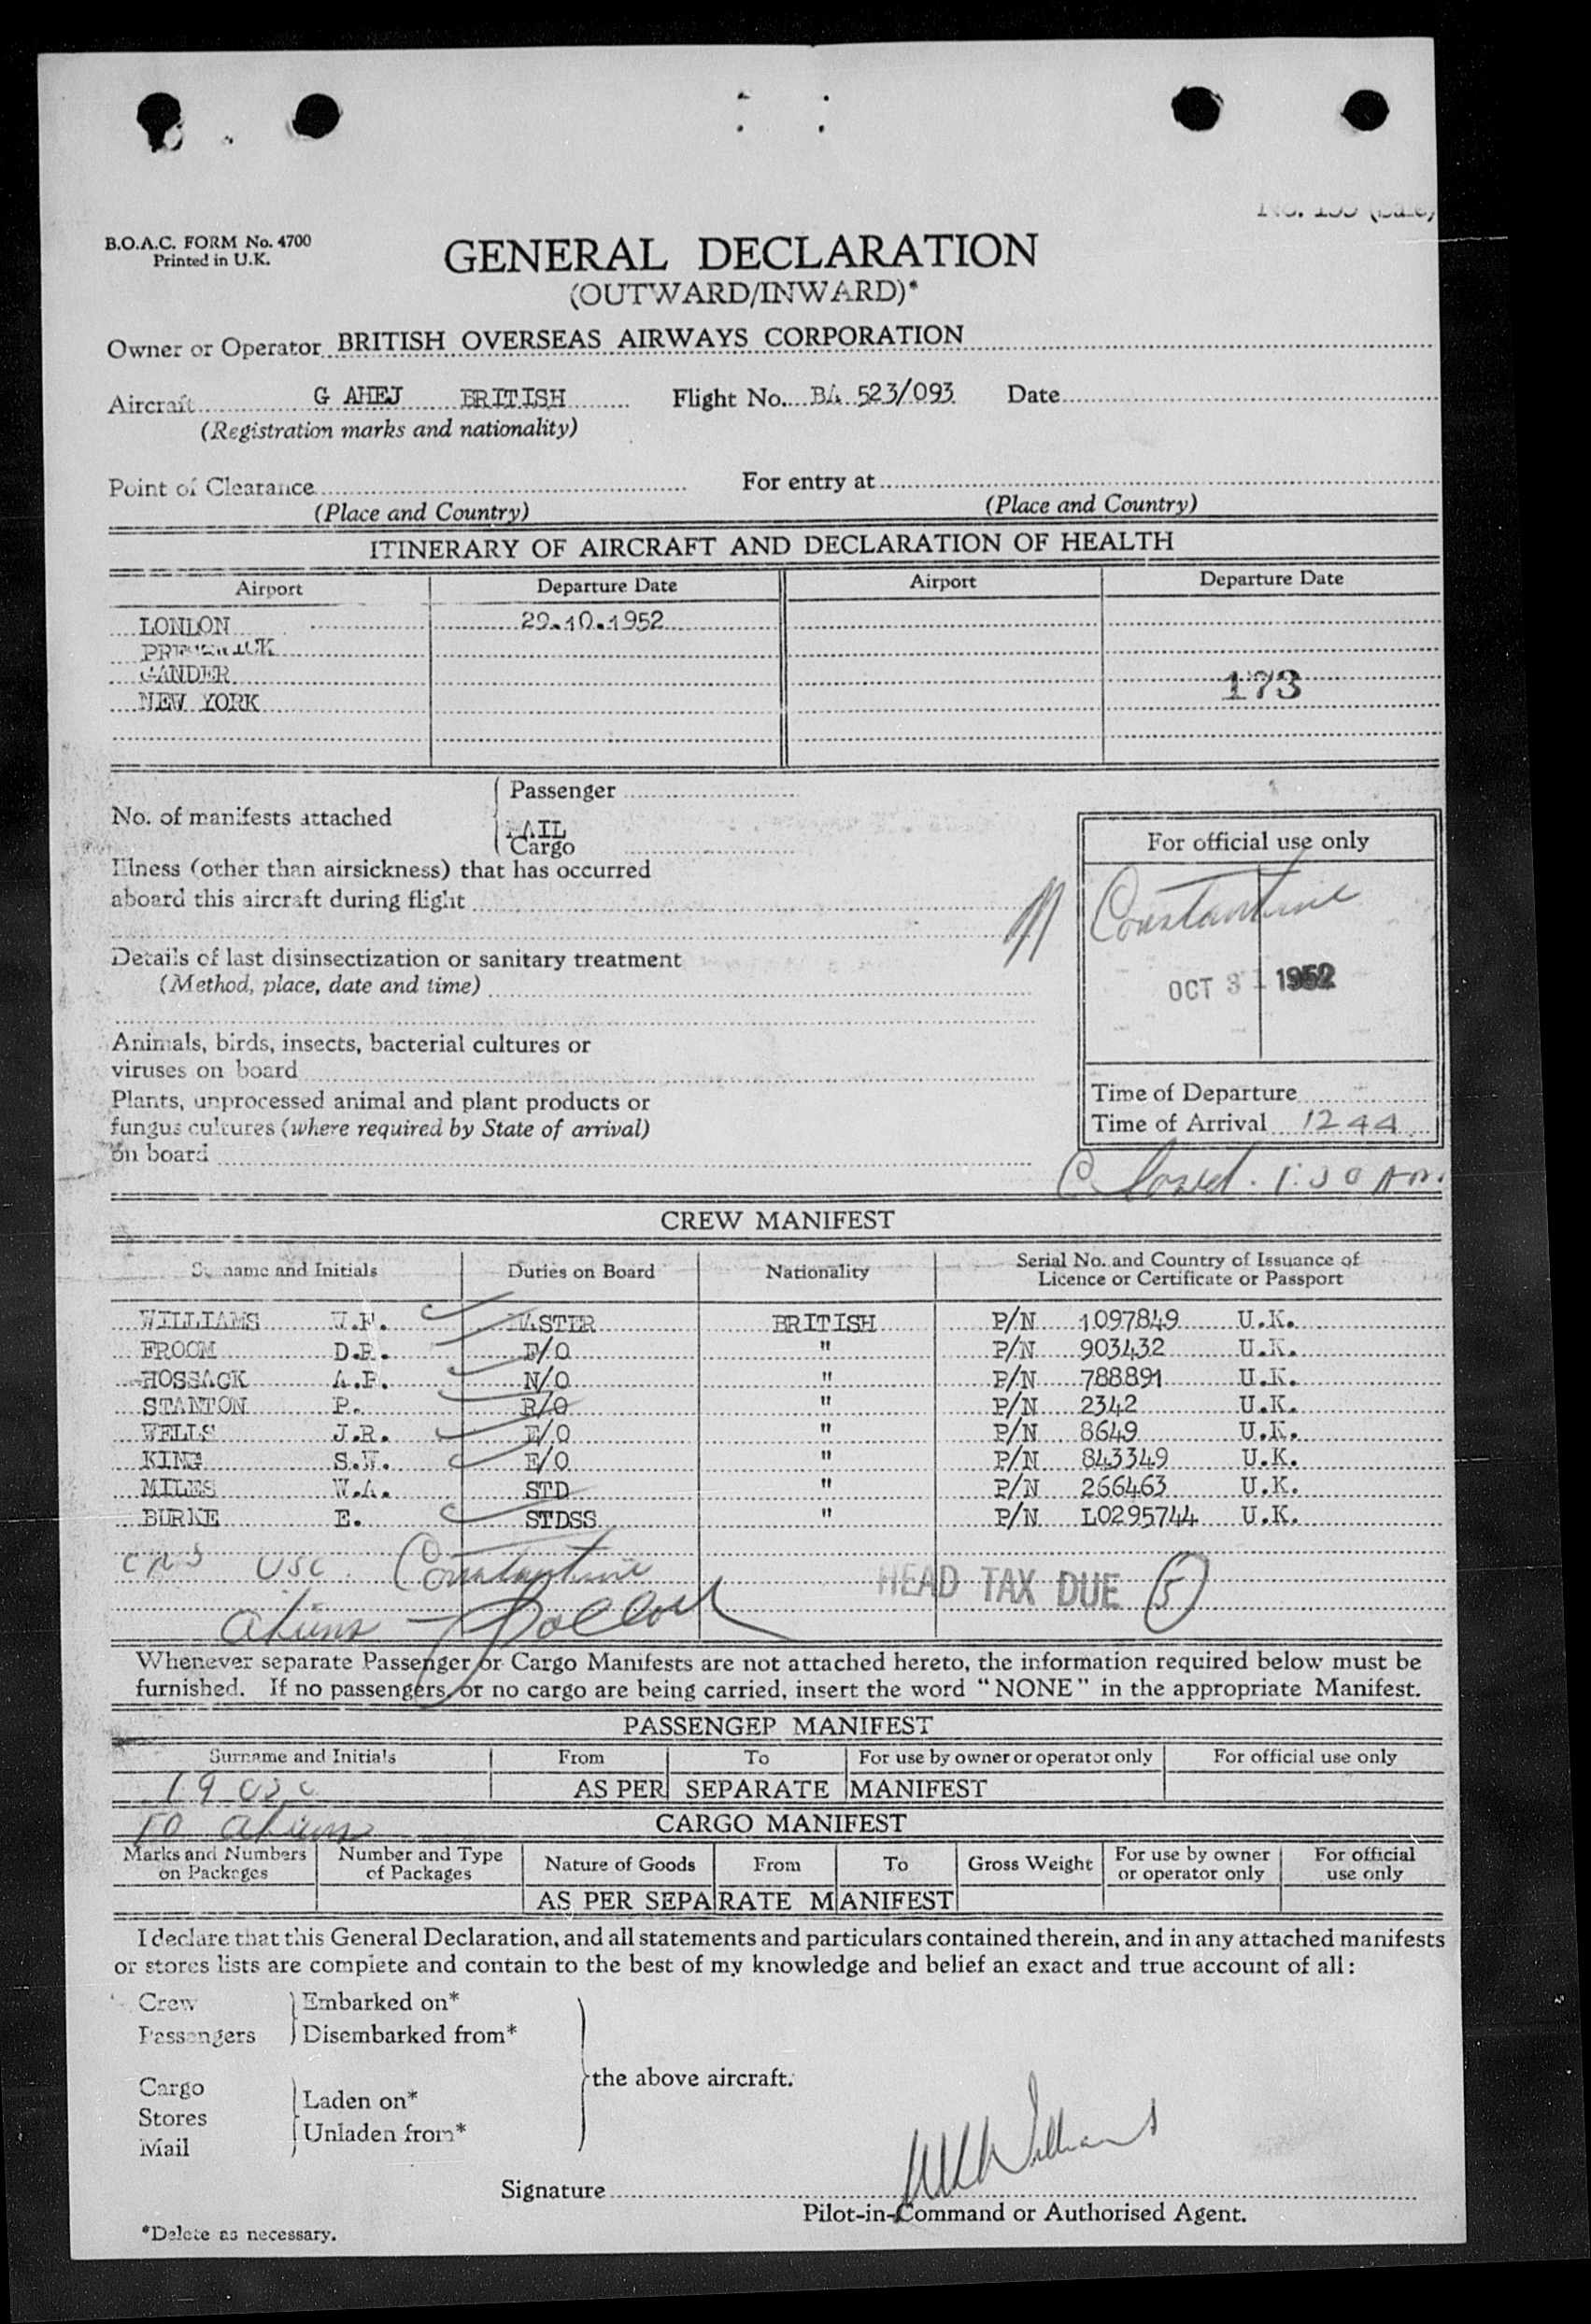 B.O.A.C. FORM No. 4700
Printed in U.K.
GENERAL DECLARATION
(OUTWARD/INWARD)*
Owner or Operator BRITISH OVERSEAS AIRWAYS CORPORATION
Aircraft G AHEJ BRITISH Flight No. BA 523/093 Date
(Registration marks and nationality)
Point of Clearance For entry at
(Place and Country) (Place and Country)
ITINERARY OF AIRCRAFT AND DECLARATION OF HEALTH
Airport Departure Date Airport Departure Date
LONDON 29.10.1952
PRESTWICK
GANDER
NEW YORK
173
Passenger
No. of manifests attached
MAIL
Cargo
For official use only
Illness (other than airsickness) that has occurred
aboard this aircraft during flight
Constantine
Details of last disinsectization or sanitary treatment
(Method, place, date and time)
OCT 31 1952
Animals, birds, insects, bacterial cultures or
viruses on board
Plants, unprocessed animal and plant products or
fungus cultures (where required by State of arrival)
on board
Time of Departure
Time of Arrival 1244
Closed. 1:30 AM.
CREW MANIFEST
Surname and Initials Duties on Board Nationality Serial No. and Country of Issuance of Licence or Certificate or Passport
WILLIAMS MASTER BRITISH P/N 1097849 U.K.
FROOM F/O " P/N 903432 U.K.
HOSSACK N/O " P/N 788891 U.K.
STANTON P. R/O " P/N 2342 U.K.
WELLS J.R. E/O " P/N 8649 U.K.
KING S.W. E/O " P/N 843349 U.K.
MILES W.A. STD " P/N 266463 U.K.
BURKE E. STDSS " P/N L0295744 U.K.
USC Constantine
HEAD TAX DUE 5
aliens
Whenever separate Passenger or Cargo Manifests are not attached hereto, the information required below must be
furnished. If no passengers, or no cargo are being carried, insert the word "NONE" in the appropriate Manifest.
PASSENGER MANIFEST
Surname and Initials From To For use by owner or operator only For official use only
19 USC AS PER SEPARATE MANIFEST
aliens
CARGO MANIFEST
Marks and Numbers on Packages Number and Type of Packages Nature of Goods From To Gross Weight For use by owner or operator only For official use only
AS PER SEPARATE MANIFEST
I declare that this General Declaration, and all statements and particulars contained therein, and in any attached manifests
or stores lists are complete and contain to the best of my knowledge and belief an exact and true account of all:
Crew Embarked on*
Passengers Disembarked from*
the above aircraft.
Cargo
Laden on*
Stores
Unladen from*
Mail
Signature Williams
Pilot-in-Command or Authorised Agent.
*Delete as necessary.